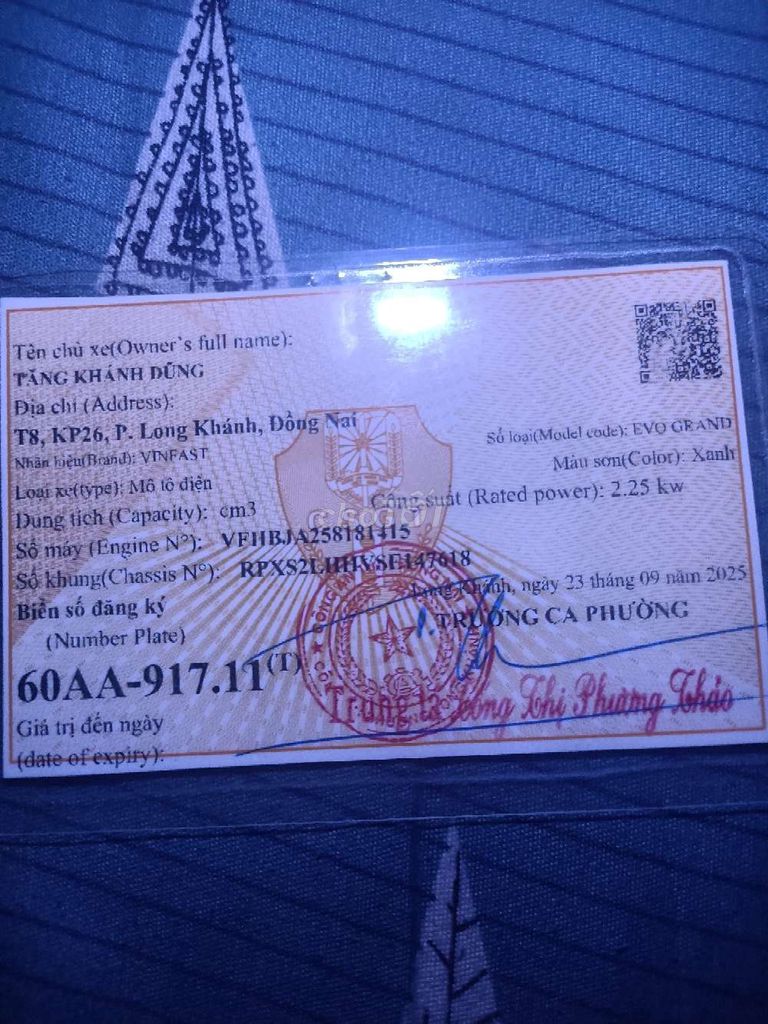 Tên chủ xe(Owner's full name):
TĂNG KHÁNH DŨNG
Địa chỉ (Address):
T8, KP26, P. Long Khánh, Đồng Nai
Nhãn hiệu(Brand): VINFAST
Số loại(Model code): EVO GRAND
Loại xe(type): Mô tô điện
Màu sơn(Color): Xanh
Dung tích (Capacity): cm3
Công suất (Rated power): 2.25 kw
Số máy (Engine N°): VFHBJA258181415
Số khung(Chassis N°): RPXS2LHHVSE147618
Biển số đăng ký
(Number Plate)
Long Khánh, ngày 23 tháng 09 năm 2025
TRƯỞNG CA PHƯỜNG
60AA-917.11(T)
Giá trị đến ngày
(date of expiry):
Trung tá Thị Phương Thảo
chợ TỐT